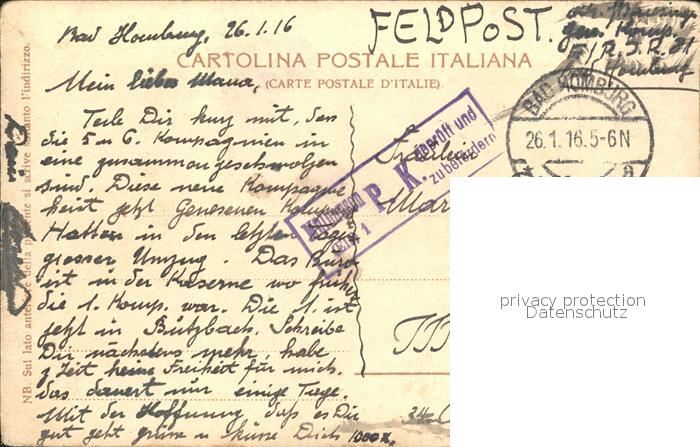 Bad Homburg, 26.1.16
FELDPOST.
gen. Komp.
E/R.I.R. 81
Homburg
CARTOLINA POSTALE ITALIANA
(CARTE POSTALE D'ITALIE).
Mein lieber
Teile Dir kurz mit, das
die 5 u 6. Kompagnien in
eine zusammengeschmolzen
sind. Diese neue Kompagnie
heist jetzt Genesenen Komp.
Hatten in den letzten Tagen
grosser Umzug. Das Büro
ist in der Kaserne wo früh.
die 1. Komp. war. Die 1. ist
jetzt in Butzbach. Schreibe
Dir nächstens mehr, habe
z Zeit keine Freiheit für mich.
das dauert nur einige Tage.
Mit der Hoffnung daß es Dir
gut geht grüsse u küsse Dich 1000x.
NB. Sul lato anteriore della presente si scrive soltanto l'indirizzo.
P. K.
geprüft und
zu befördern
BAD HOMBURG
26.1.16.5-6N
Fräulein
Mar
34
privacy protection
Datenschutz